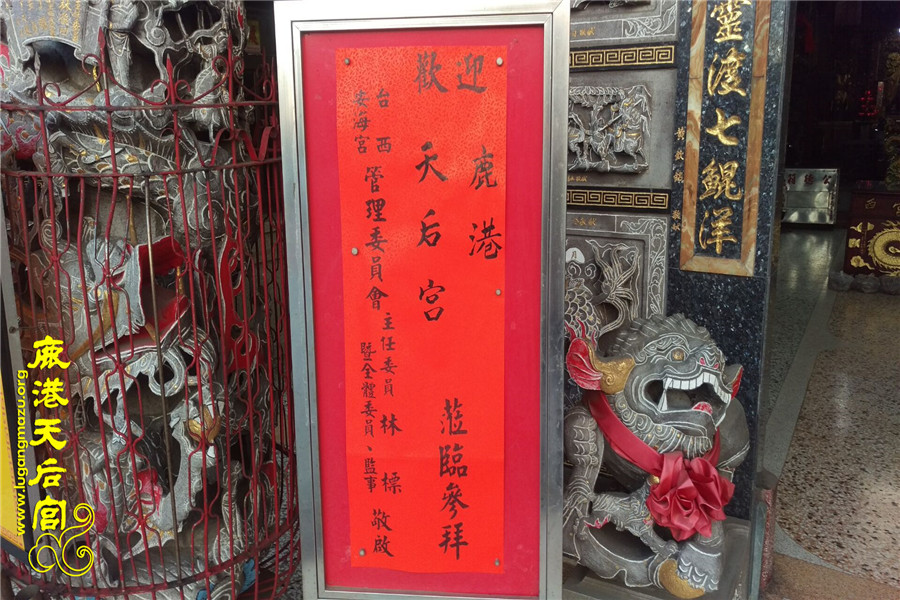 歡迎
鹿港
天后宮
蒞臨參拜
台西
安海宮
管理委員會
主任委員 林標
暨全體委員、監事
敬啟
靈渡七鯤洋
鹿港天后宮
www.lugangmazu.org